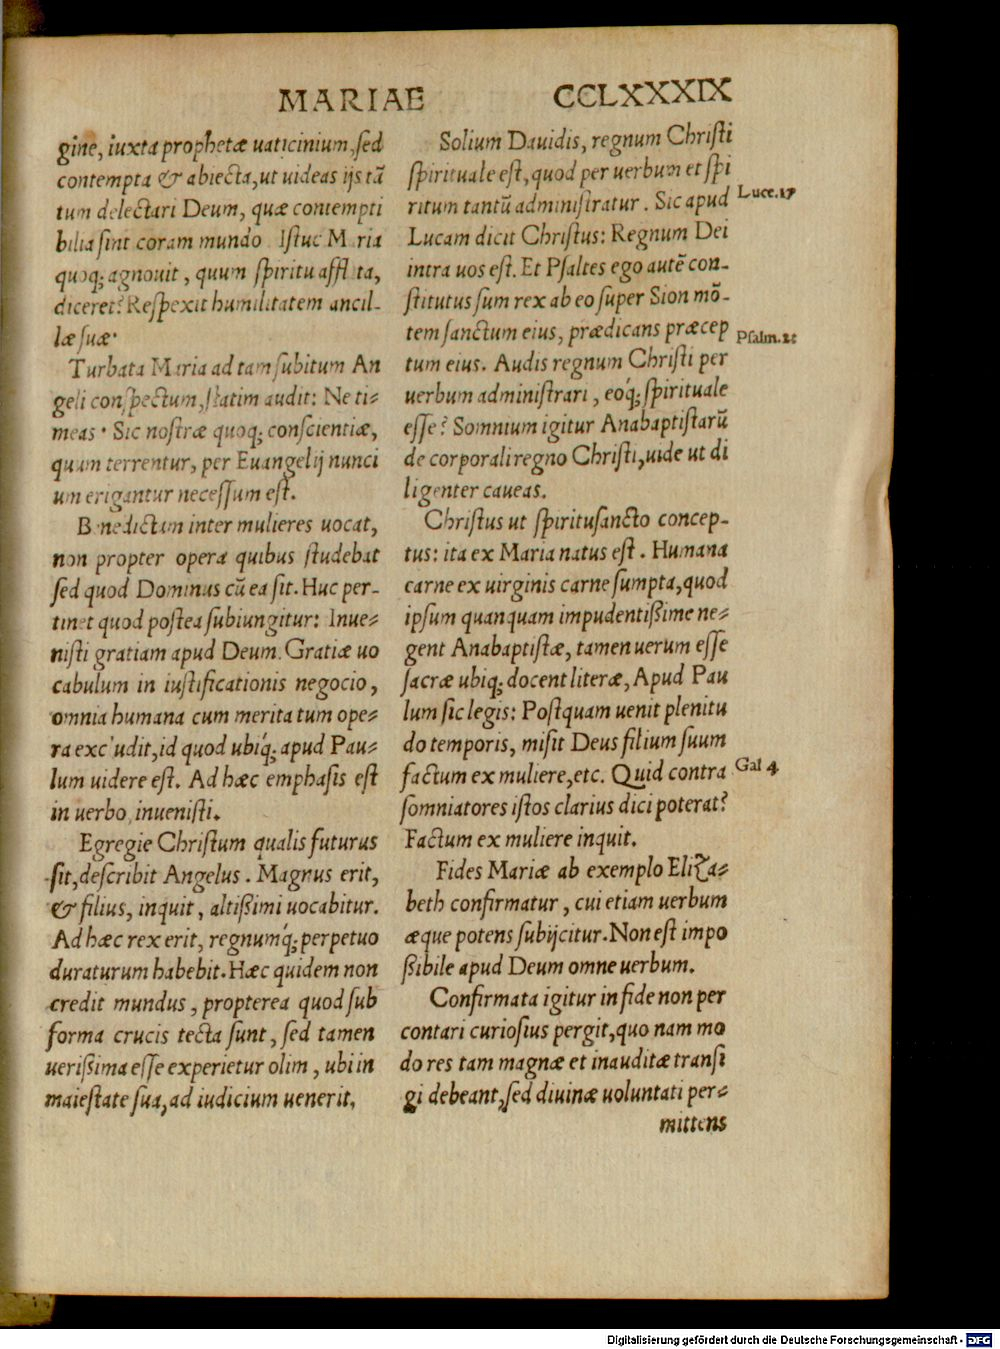 MARIAE CCLXXXIX
gine, iuxta prophetæ uaticinium, sed
contempta & abiecta, ut uideas ijs tā
tum delectari Deum, quæ contempti
bilia sint coram mundo Istuc Maria
quoq; agnouit, quum spiritu afflata,
diceret? Respexit humilitatem ancil-
læ suæ.
Turbata Maria ad tam subitum An
geli conspectum, statim audit: Ne ti-
meas. Sic nostræ quoq; conscientiæ,
quum terrentur, per Euangelij nunci
um erigantur necessum est.
Benedictam inter mulieres uocat,
non propter opera quibus studebat
sed quod Dominus cū ea sit. Huc per-
tinet quod postea subiungitur: Inue-
nisti gratiam apud Deum. Gratiæ uo
cabulum in iustificationis negocio,
omnia humana cum merita tum ope-
ra excludit, id quod ubiq́; apud Pau-
lum uidere est. Ad hæc emphasis est
in uerbo, inuenisti.
Egregie Christum qualis futurus
sit, describit Angelus. Magnus erit,
& filius, inquit, altißimi uocabitur.
Ad hæc rex erit, regnumq́; perpetuo
duraturum habebit. Hæc quidem non
credit mundus, propterea quod sub
forma crucis tecta sunt, sed tamen
uerißima esse experietur olim, ubi in
maiestate sua, ad iudicium uenerit.
Solium Dauidis, regnum Christi
spirituale est, quod per uerbum et spi
ritum tantū administratur. Sic apud
Luce. 17
Lucam dicit Christus: Regnum Dei
intra uos est. Et Psaltes ego autē con-
stitutus sum rex ab eo super Sion mō-
tem sanctum eius, prædicans præcep
Psalm. 2
tum eius. Audis regnum Christi per
uerbum administrari, eoq́; spirituale
esse? Somnium igitur Anabaptistarū
de corporali regno Christi, uide ut di
ligenter caueas.
Christus ut spiritusancto concep-
tus: ita ex Maria natus est. Humana
carne ex uirginis carne sumpta, quod
ipsum quanquam impudentißime ne-
gent Anabaptistæ, tamen uerum esse
sacræ ubiq; docent literæ, Apud Pau
lum sic legis: Postquam uenit plenitu
do temporis, misit Deus filium suum
factum ex muliere, etc. Quid contra
Gal 4.
somniatores istos clarius dici poterat?
Factum ex muliere inquit.
Fides Mariæ ab exemplo Eliza-
beth confirmatur, cui etiam uerbum
æque potens subijcitur. Non est impo
ßibile apud Deum omne uerbum.
Confirmata igitur in fide non per
contari curiosius pergit, quo nam mo
do res tam magnæ et inauditæ transi
gi debeant, sed diuinæ uoluntati per-
mittens
Digitalisierung gefördert durch die Deutsche Forschungsgemeinschaft - DFG